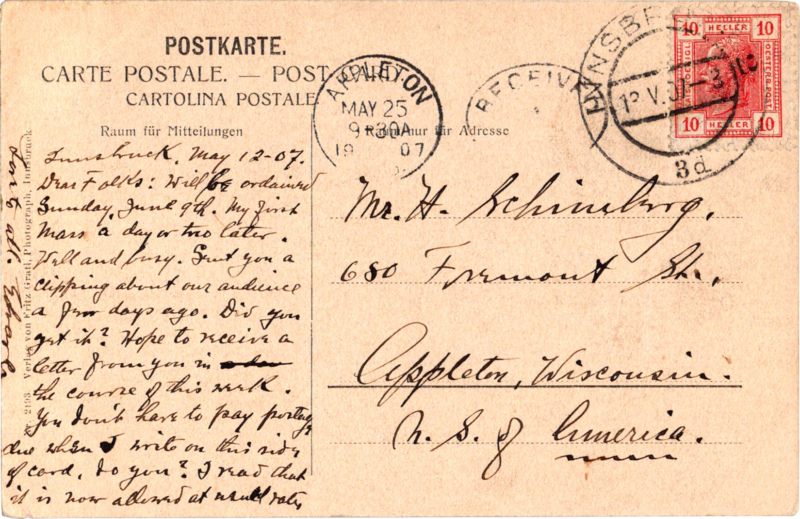 POSTKARTE.
CARTE POSTALE. — POST CARD
CARTOLINA POSTALE
Raum für Mitteilungen
Raum nur für Adresse
APPLETON
MAY 25
9-30A
19 07
RECEIVED
INNSBRUCK
12.V.07
3d
10 HELLER 10
10 HELLER 10
Innsbruck, May 12-07.
Dear Folks: Will be ordained
Sunday, June 9th. My first
Mass a day or two later.
Well and busy. Sent you a
clipping about our audience
a few days ago. Did you
get it? Hope to receive a
letter from you in
the course of this week.
You don't have to pay postage
due when I write on this side
of card, do you? I read that
it is now allowed at usual rates
Mr. H. Schineberg,
680 Fremont St.,
Appleton, Wisconsin.
U. S. of America.
Nr. 2193 Verlag von Fritz Gratl, Photograph, Innsbruck.